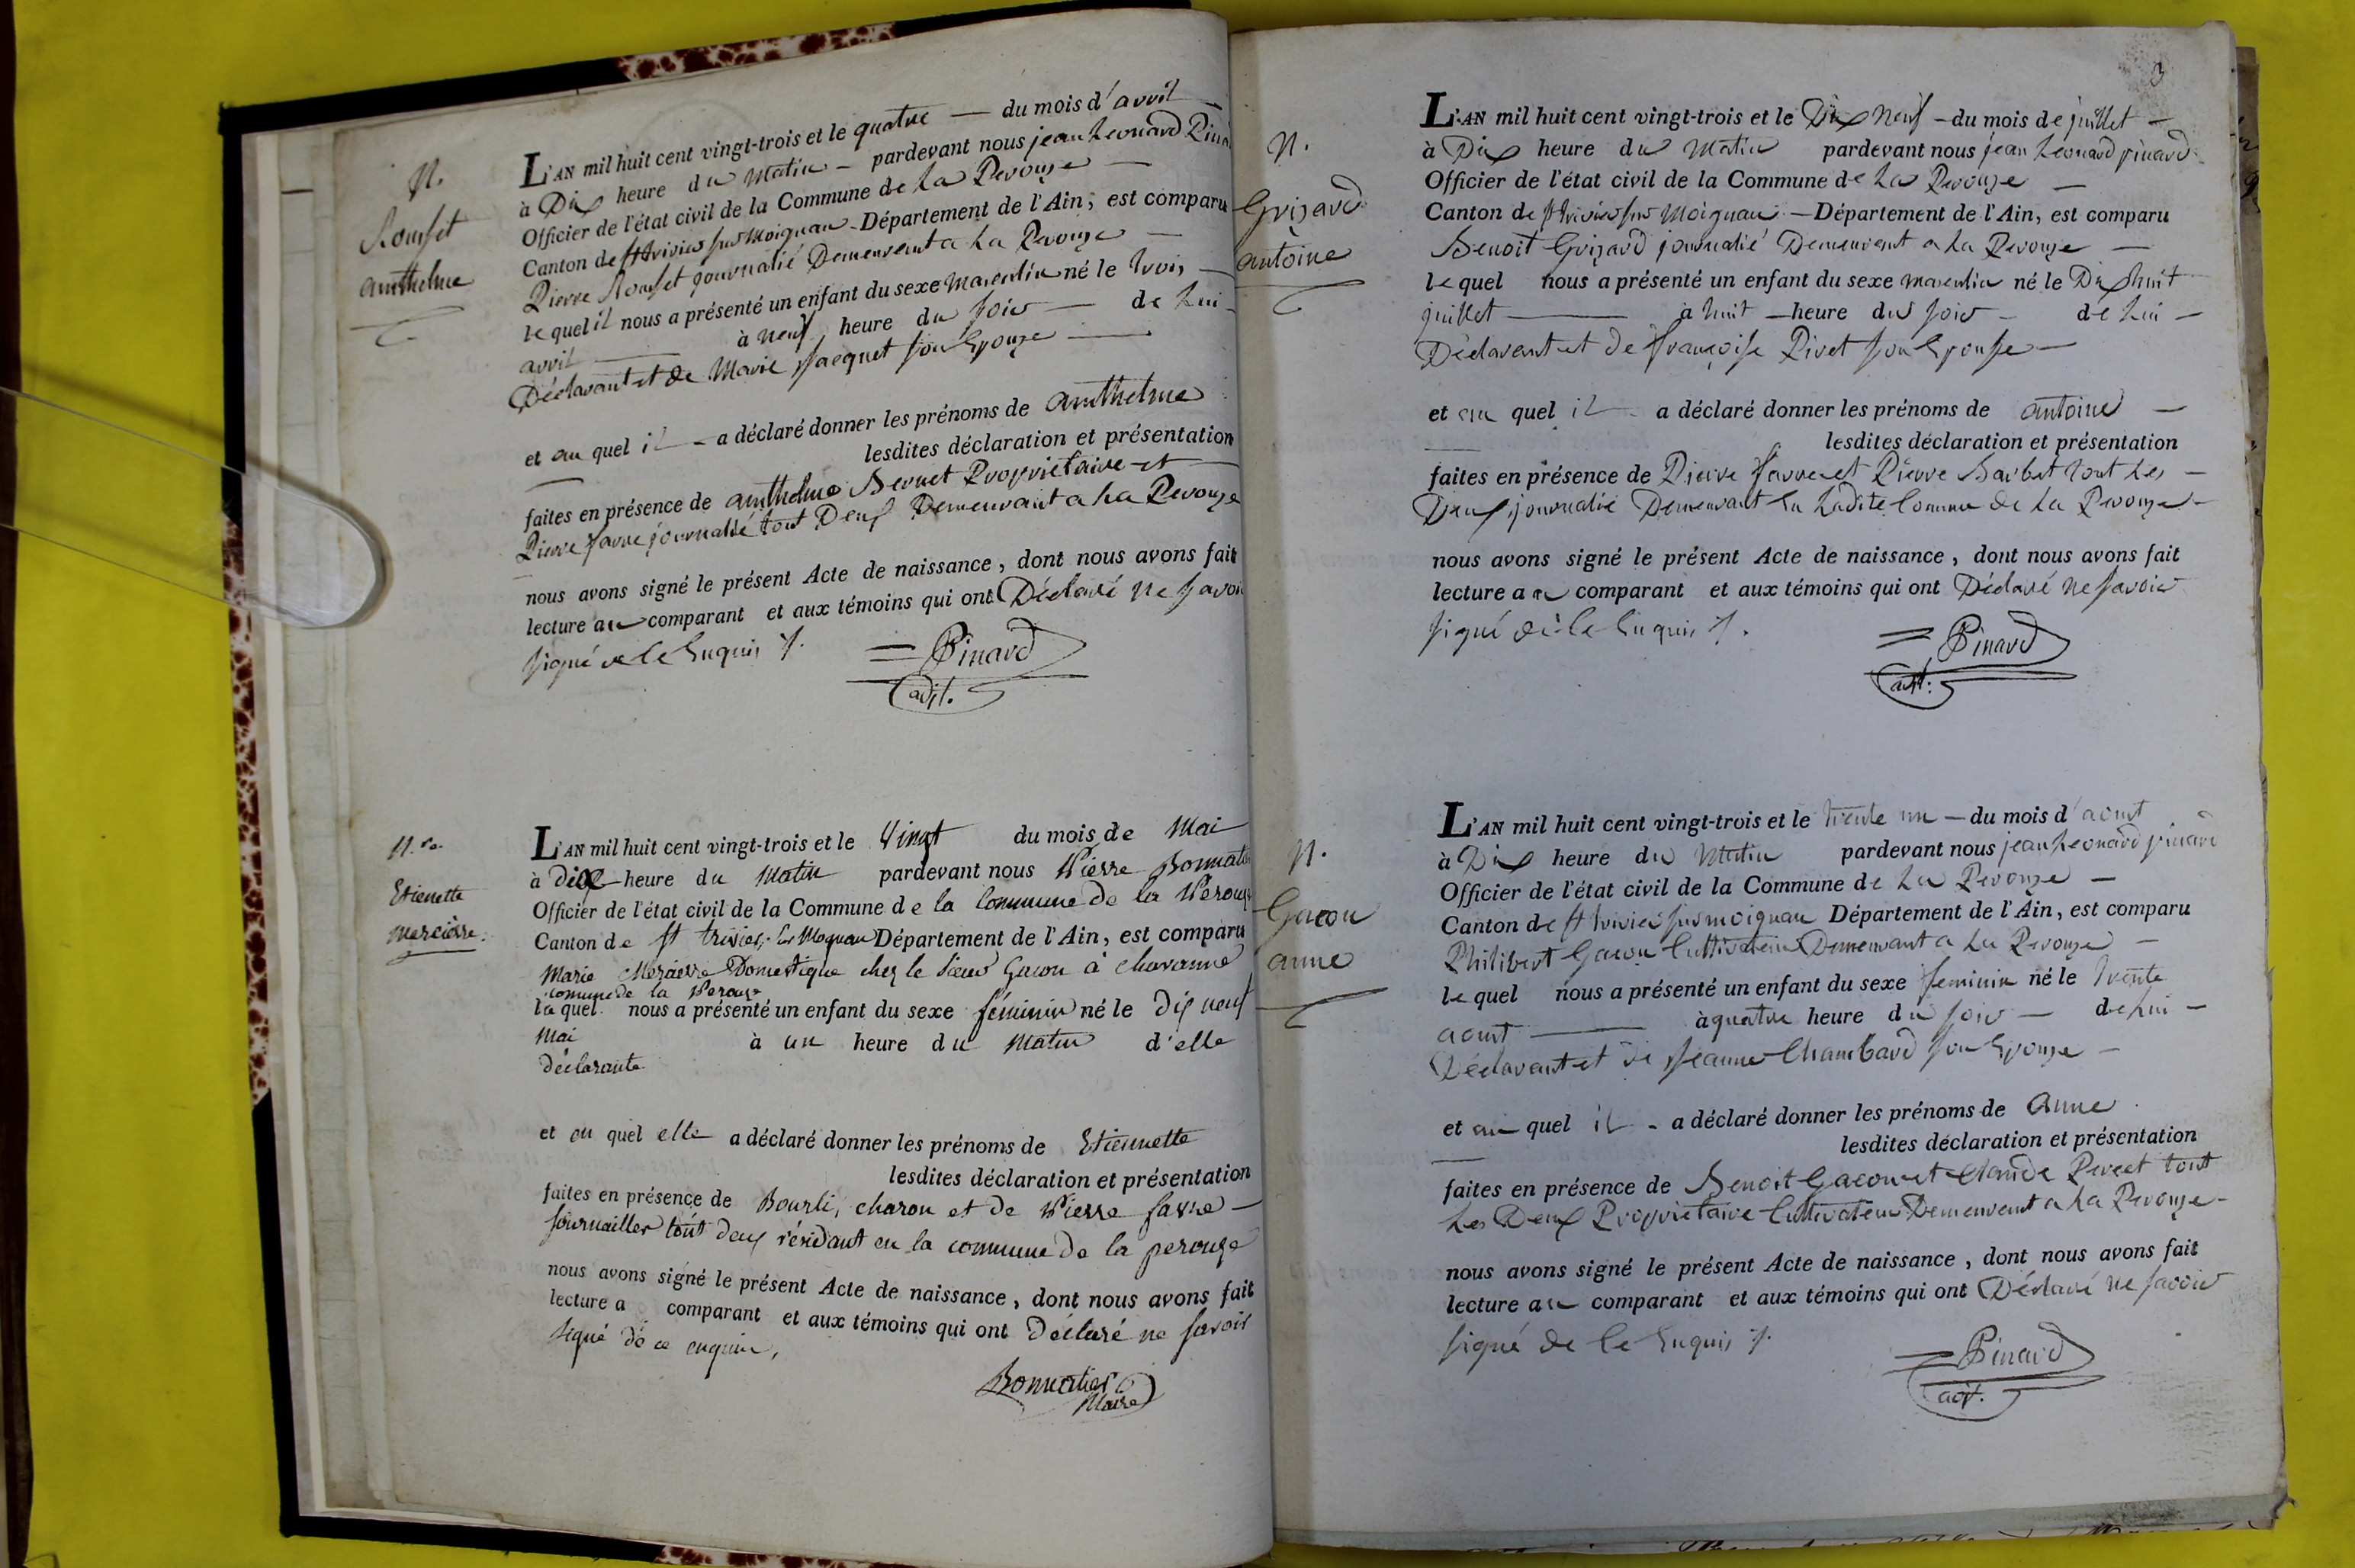 N.
Rousset
amthelme
L'AN mil huit cent vingt-trois et le quatre — du mois d'avril —
à Dix heure du Matin — pardevant nous jean Leonard Pinar
Officier de l'état civil de la Commune de La Perouze —
Canton de St trivier sur Moignan - Département de l'Ain, est comparu
Pierre Rousset journalié Demeurent a La Perouze —
lequel il nous a présenté un enfant du sexe masculin né le trois —
avril — à neuf heure du soir — de Lui —
Déclarant et de Marie Jacquet son Epouze —
et au quel il — a déclaré donner les prénoms de amthelme
— lesdites déclaration et présentation
faites en présence de amthelme Bernet Proprietaire et —
Pierre favre journalié tout Deux Demeurant a La Perouze
nous avons signé le présent Acte de naissance, dont nous avons fait
lecture au comparant et aux témoins qui ont Déclaré ne savoir
signé de Ce Enquis /.
= Pinard
adjt.
N.re
Etiennette
merciere.
L'AN mil huit cent vingt-trois et le Vingt du mois de Mai
à dix heure du Matin pardevant nous Pierre Bonnat
Officier de l'état civil de la Commune de la Commune de la Perouze
Canton de St trivier, sur Mognan Département de l'Ain, est comparu
Marie Merciere Domestique chez le sieur Gacon à Chavanne
commune de la Perouze
la quel nous a présenté un enfant du sexe féminin né le dix neuf
Mai à un heure du Matin d'elle
déclarante
et au quel elle a déclaré donner les prénoms de Etiennette
lesdites déclaration et présentation
faites en présence de Bourli, charon et de Pierre favre —
journailler tout deux résidant en la commune de la perouze
nous avons signé le présent Acte de naissance, dont nous avons fait
lecture a comparant et aux témoins qui ont déclaré ne savoir
signé de ce enquir,
Bonnatier
Maire
3
N.
Grizard
antoine
L'AN mil huit cent vingt-trois et le Dix neuf — du mois de juillet —
à Dix heure du Matin pardevant nous jean Leonard pinard
Officier de l'état civil de la Commune de La Perouze —
Canton de St trivier sur Moignan — Département de l'Ain, est comparu
Benoit Grizard journalié Demeurent a La Perouze —
lequel nous a présenté un enfant du sexe masculin né le Dix huit
juillet — à huit — heure du soir — de Lui —
Déclarant et de françoise Pivet son Epouse —
et au quel il — a déclaré donner les prénoms de antoine —
— lesdites déclaration et présentation
faites en présence de Pierre favre et Pierre Barbet tout Les —
Deux journalié Demeurant En Ladite Commune de La Perouze —
nous avons signé le présent Acte de naissance, dont nous avons fait
lecture a au comparant et aux témoins qui ont Déclaré ne savoir
signé de Ce Enquis /.
= Pinard
adjt:
N.
Gacon
anne
L'AN mil huit cent vingt-trois et le trente un — du mois d'aoust
à Dix heure du Matin pardevant nous jean Leonard pinard
Officier de l'état civil de la Commune de La Perouze —
Canton de St trivier sur moignan Département de l'Ain, est comparu
Philibert Gacon Cultivateur Demeurant a La Perouze —
lequel nous a présenté un enfant du sexe feminin né le trente
aoust — à quatre heure du soir — de Lui —
Déclarant et de Jeanne Chambard son Epouze —
et au quel il - a déclaré donner les prénoms de anne
— lesdites déclaration et présentation
faites en présence de Benoit Gacon et Claude Perret tout
Les Deux Proprietaire Cultivateur Demeurent a La Perouze -
nous avons signé le présent Acte de naissance, dont nous avons fait
lecture au comparant et aux témoins qui ont Déclaré ne savoir
signé de Ce Enquis /.
= Pinard
adjt.